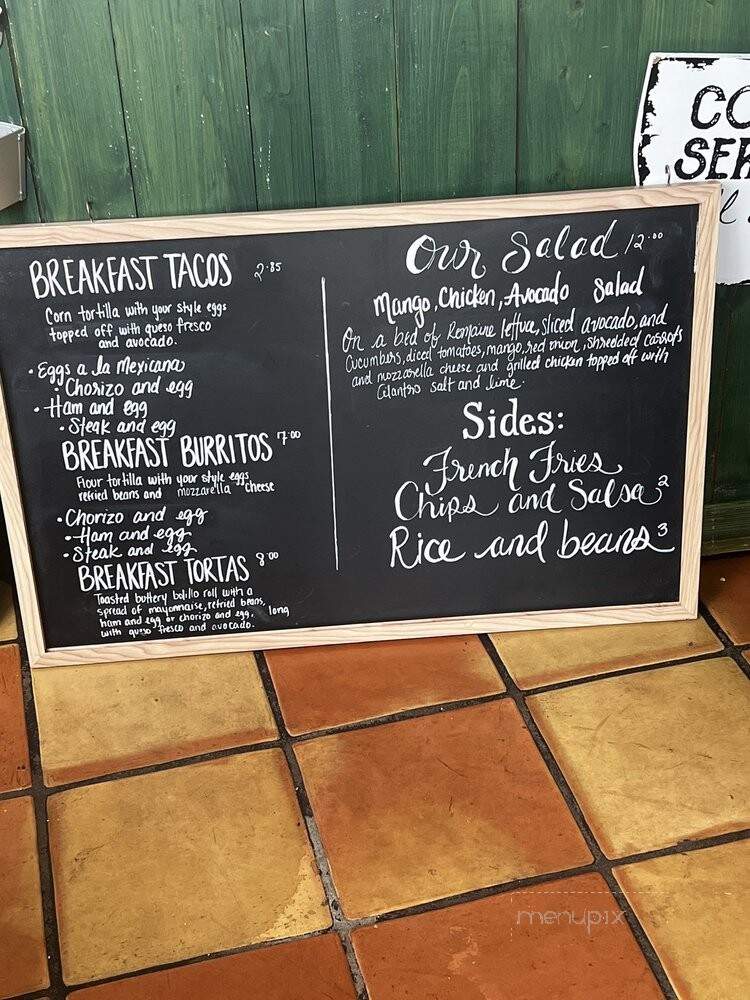 BREAKFAST TACOS 2.85
Corn tortilla with your style eggs
topped off with queso fresco
and avocado.
• Eggs a la Mexicana
Chorizo and egg
• Ham and egg
• Steak and egg
BREAKFAST BURRITOS 7.00
Flour tortilla with your style eggs
refried beans and mozzarella cheese
• Chorizo and egg
• Ham and egg
• Steak and egg
BREAKFAST TORTAS 8.00
Toasted buttery bolillo roll with a
spread of mayonnaise, refried beans,
ham and egg or chorizo and egg, long
with queso fresco and avocado.
Our Salad 12.00
Mango, Chicken, Avocado Salad
On a bed of Romaine lettua, sliced avocado, and
Cucumbers, diced tomatoes, mango, red onion, shredded carrots
and mozzarella cheese and grilled chicken topped off with
Cilantro salt and lime.
Sides:
French Fries
Chips and Salsa 2
Rice and beans 3
CO
SER
menupix